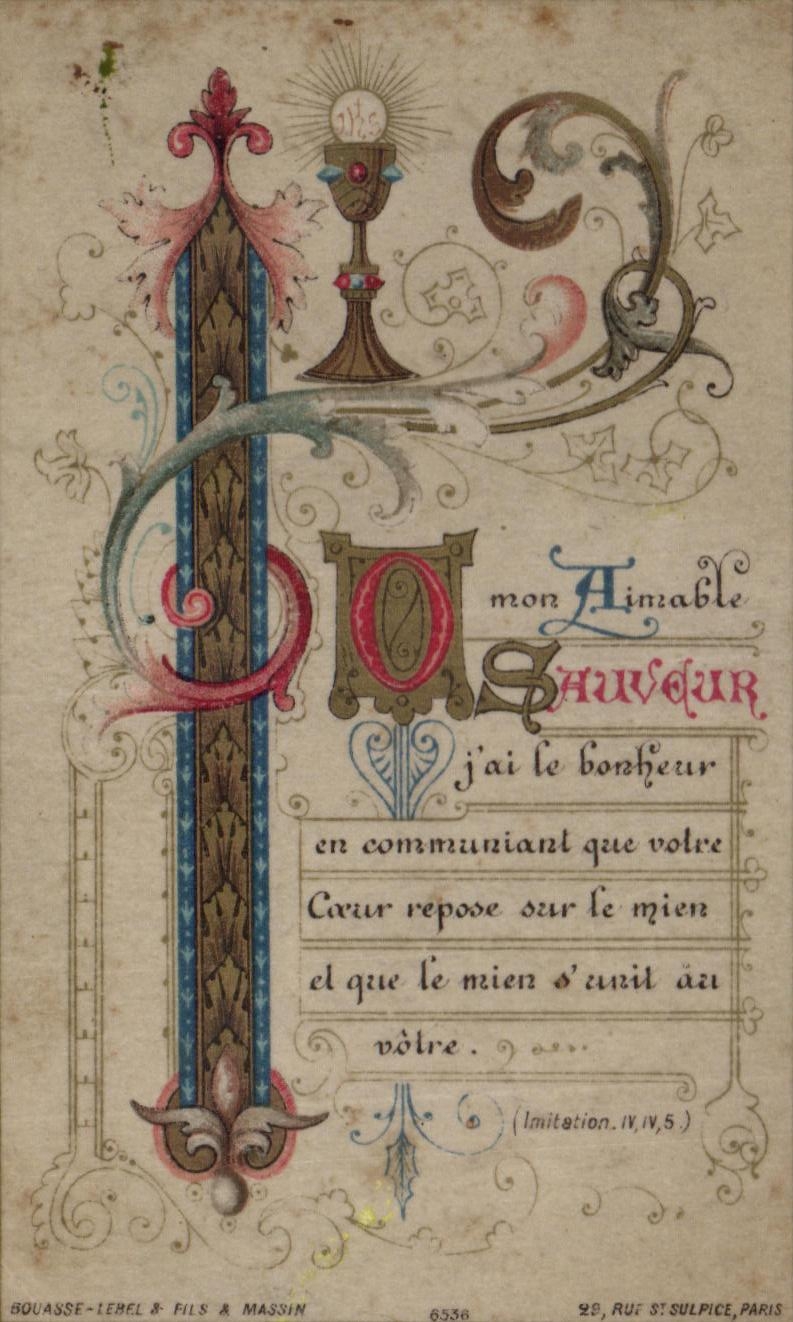 JHS
O mon Aimable
Sauveur
j'ai le bonheur
en communiant que votre
Cœur repose sur le mien
et que le mien s'unit au
vôtre.
(Imitation. IV, IV, 5.)
BOUASSE-LEBEL & FILS & MASSIN
6536
29, RUE ST SULPICE, PARIS